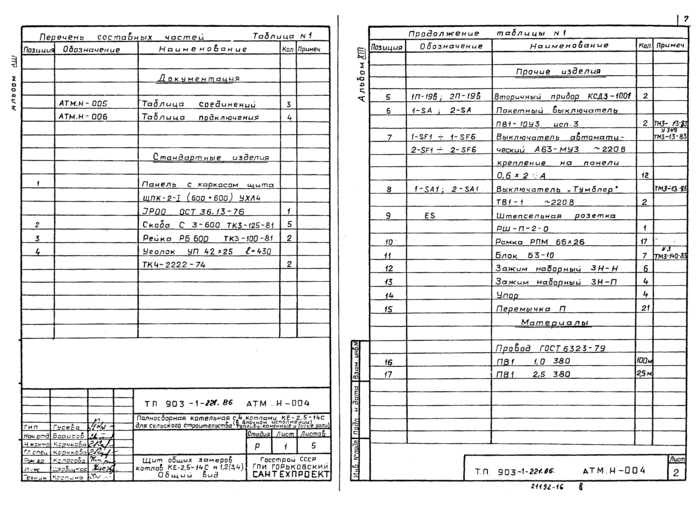 Перечень составных частей Таблица N1
Позиция Обозначение Наименование Кол Примеч
Документация
АТМ.Н-005 Таблица соединений 3
АТМ.Н-006 Таблица подключения 4
Стандартные изделия
1 Панель с каркасом щита
ЩПК-2-I (600+600) УХЛ4
IР00 ОСТ 36.13-76 1
2 Скоба С 3-600 ТК3-125-81 5
3 Рейка РБ 600 ТК3-100-81 2
4 Уголок УП 42×25 ℓ=430
ТК4-2222-74 2
Альбом
ТП 903-1-221.86 АТМ.Н-004
Полносборная котельная с 4 котлами КЕ-2,5-14С
для сельского строительства
Стадия Лист Листов
Р 1 5
ГИП Гусева
Нач отд Борисов
Н.контр Корчикова
Гл спец Корчикова
Рук.гр Колосова
Инж.
Техник
Щит общих замеров
котлов КЕ-2,5-14С N1,2(3,4).
Общий вид
Госстрой СССР
ГПИ ГОРЬКОВСКИЙ
САНТЕХПРОЕКТ
7
Продолжение таблицы N1
Позиция Обозначение Наименование Кол Примеч
Прочие изделия
5 1П-19Б; 2П-19Б Вторичный прибор КСД3-1001 2
6 1-SA; 2-SA Пакетный выключатель
ПВ1-10У3 исп.3 2
7 1-SF1 ÷ 1-SF6 Выключатель автомати- ТМ3-13-83
2-SF1 ÷ 2-SF6 ческий А63-МУ3 ~220В
крепление на панели
0,6×2 А 12
8 1-SA1; 2-SA1 Выключатель „Тумблер" ТМ3-13-83
ТВ1-1 ~220В 2
9 ES Штепсельная розетка
РШ-П-2-0 1
10 Рамка РПМ 66×26 17
11 Блок БЗ-10 7 ТМ3-140-83
12 Зажим наборный ЗН-Н 6
13 Зажим наборный ЗН-П 4
14 Упор 4
15 Перемычка П 21
Материалы
Провод ГОСТ 6323-79
16 ПВ1 1,0 380 100м
17 ПВ1 2,5 380 2,5м
Альбом XIII
Инв.N подл Подп. и дата Взам.инв.N
Т.П. 903-1-221.86. АТМ.Н-004
Лист
2
21192-16 8